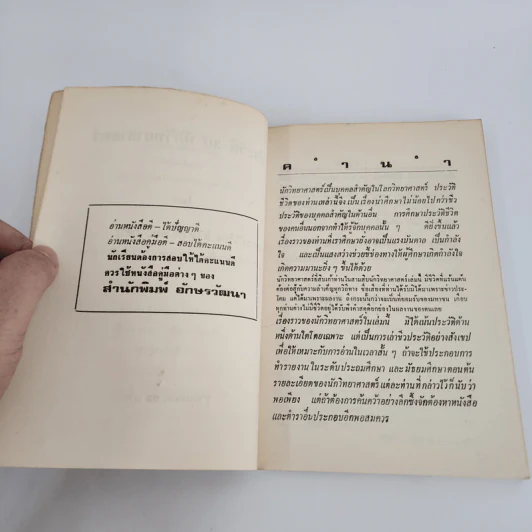 อ่านหนังสือดี – ได้ปัญญาดี
อ่านหนังสือคู่มือดี – สอบได้คะแนนดี
นักเรียนต้องการสอบให้ได้คะแนนดี
ควรใช้หนังสือคู่มือต่าง ๆ ของ
สำนักพิมพ์ อักษรวัฒนา
คำนำ
นักวิทยาศาสตร์เป็นบุคคลสำคัญในโลกวิทยาศาสตร์ ประวัติ
ชีวิตของท่านเหล่านี้จึงเป็นเรื่องน่าศึกษาไม่น้อยไปกว่าชีว
ประวัติของบุคคลสำคัญในด้านอื่น การศึกษาประวัติชีวิต
ของคนอื่นนอกจากทำให้รู้จักบุคคลนั้น ๆ ดียิ่งขึ้นแล้ว
เรื่องราวของท่านที่เราศึกษายังอาจเป็นแรงบันดาล เป็นกำลัง
ใจ และเป็นแสงสว่างช่วยชี้ช่องทางให้ผู้ศึกษาเกิดกำลังใจ
เกิดความมานะยิ่ง ๆ ขึ้นได้ด้วย
เรื่องราวของนักวิทยาศาสตร์ในเล่มนี้ มิได้เน้นประวัติด้าน
หนึ่งด้านใดโดยเฉพาะ แต่เป็นการเล่าชีวประวัติอย่างสังเขป
เพื่อให้เหมาะกับการอ่านในเวลาสั้น ๆ ถ้าจะใช้ประกอบการ
ทำรายงานในระดับประถมศึกษา และมัธยมศึกษาตอนต้น
รายละเอียดของนักวิทยาศาสตร์แต่ละท่านที่กล่าวไว้ก็นับว่า
พอเพียง แต่ถ้าต้องการค้นคว้าอย่างลึกซึ้งจักต้องหาหนังสือ
และตำราอื่นประกอบอีกพอสมควร